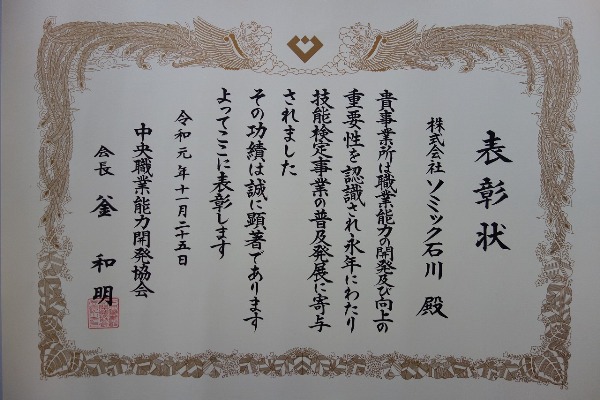 表彰状
株式会社 ソミック石川 殿
貴事業所は職業能力の開発及び向上の
重要性を認識され永年にわたり
技能検定事業の普及発展に寄与
されました
その功績は誠に顕著であります
よってここに表彰します
令和元年十一月二十五日
中央職業能力開発協会
会長 釜 和明